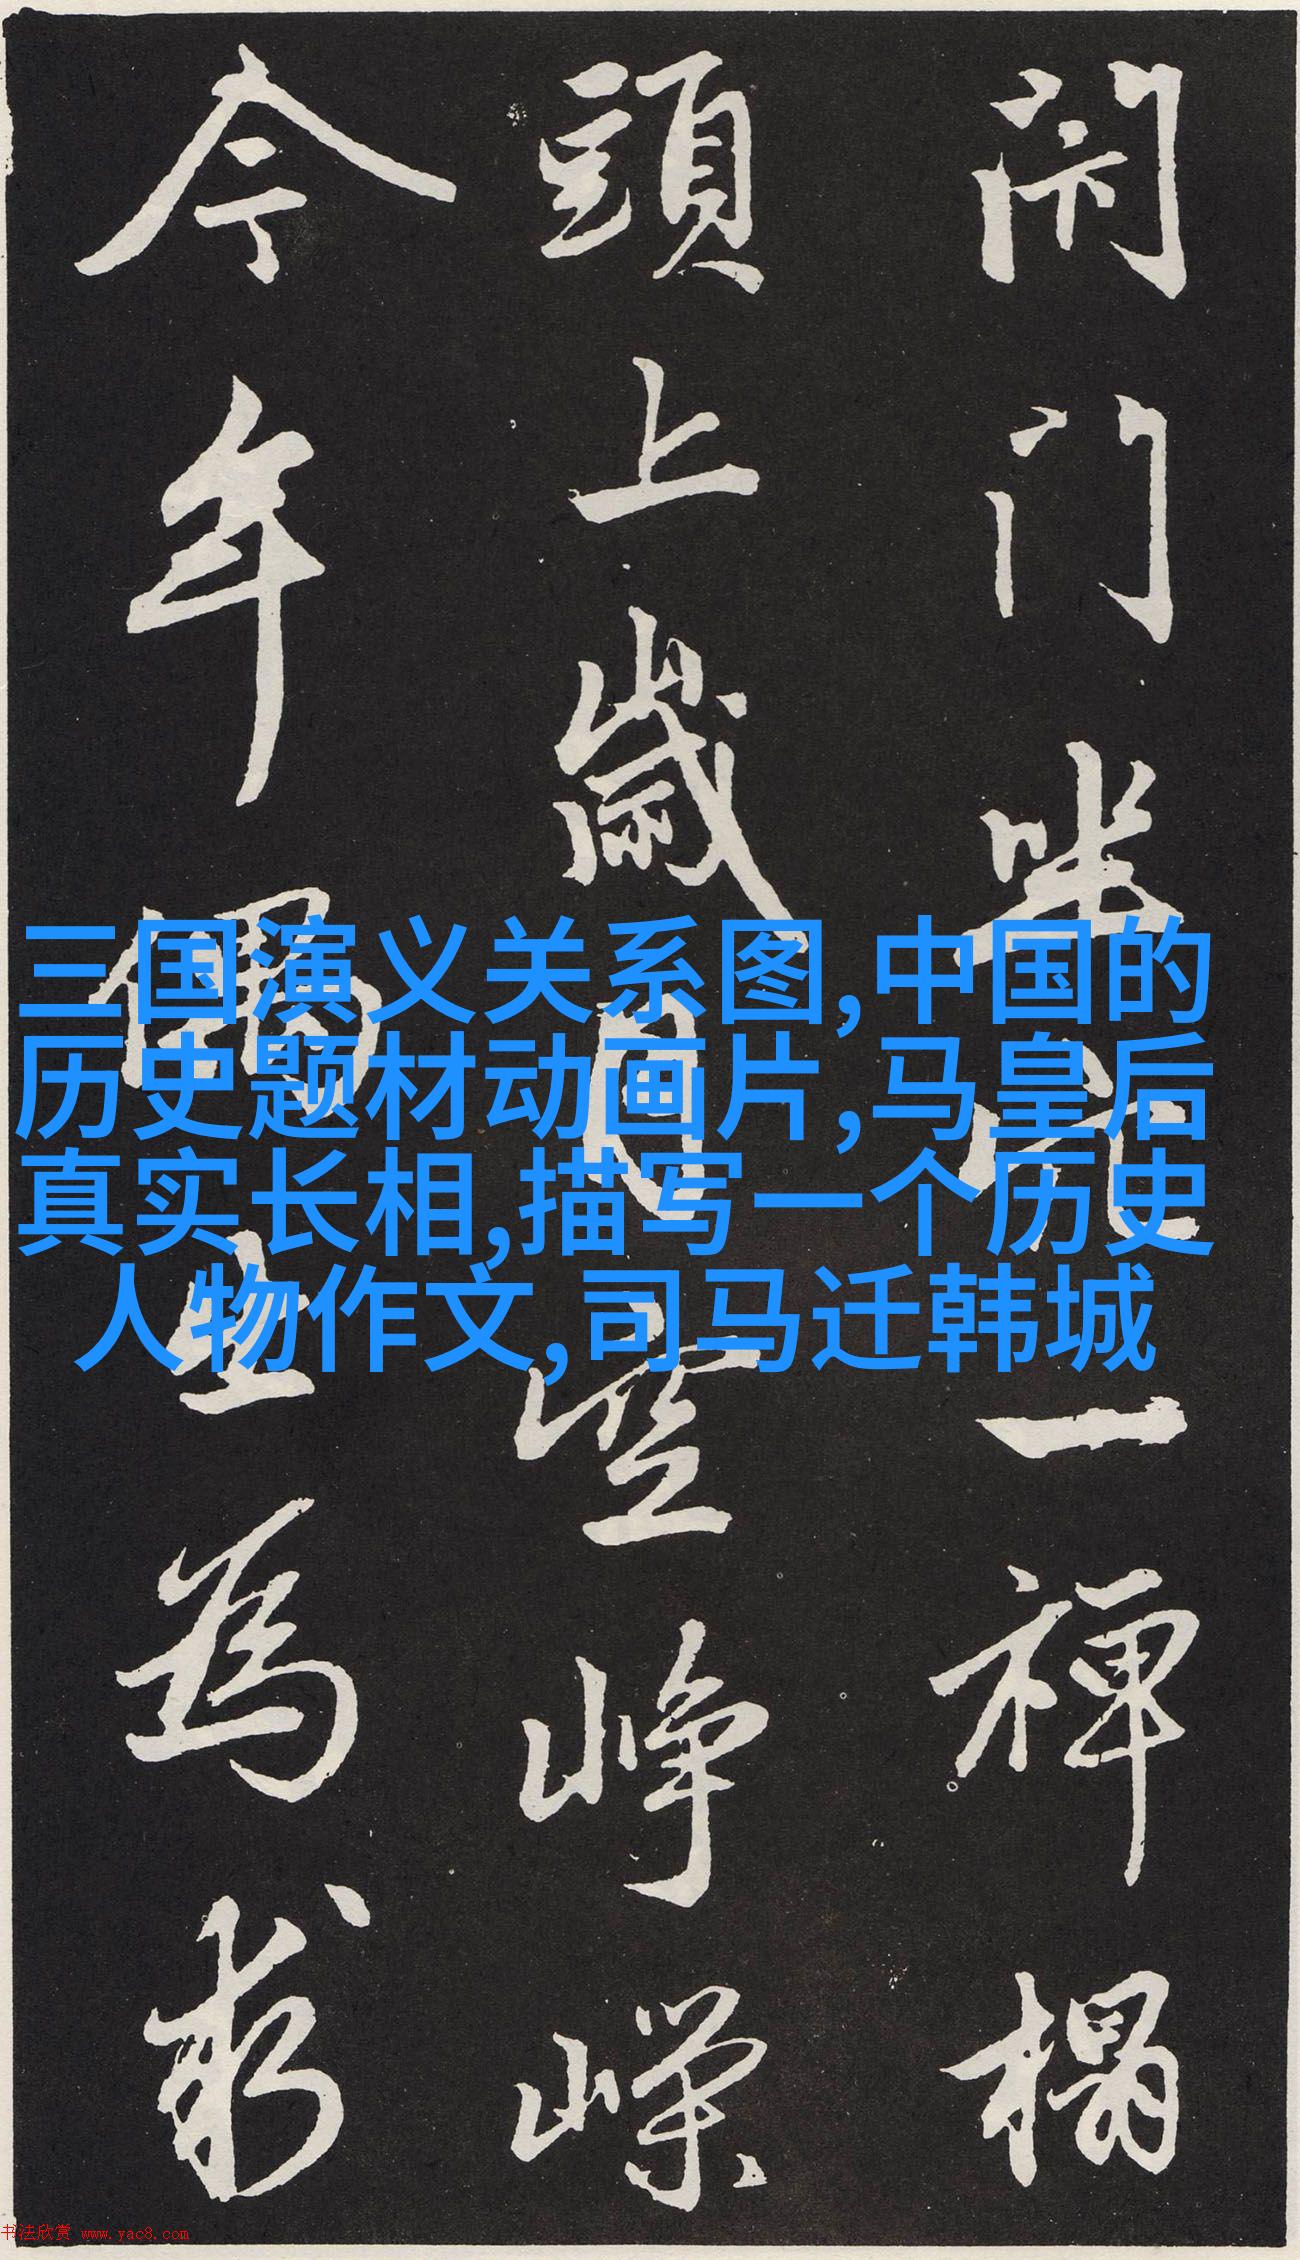 閇門坐穴一禪榻
頭上歲月空崢嶸
今年偶出為求
三国演义关系图,中国的
历史题材动画片,马皇后
真实长相,描写一个历史
人物作文,司马迁韩城
书法欣赏 www.yac8.com